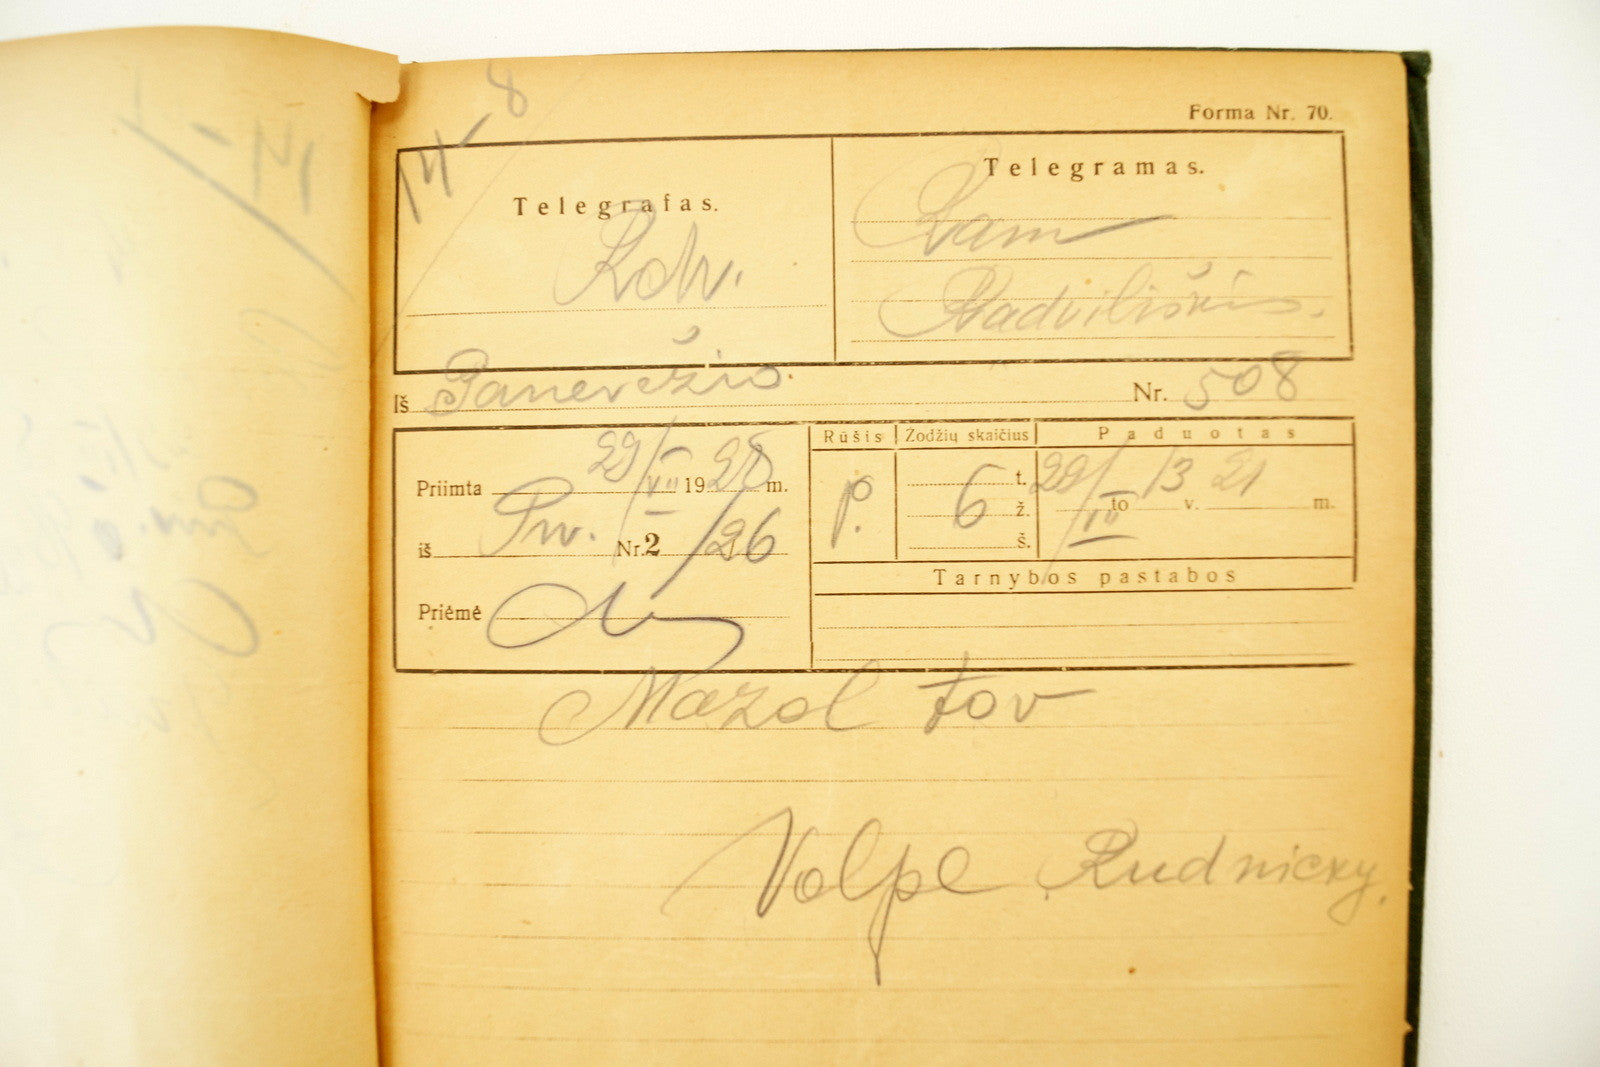 14-8
Forma Nr. 70.
Telegrafas.
Rdv.
Telegramas.
Ram
Radviliškis.
Iš Panevėžio. Nr. 508
Priimta 29/VII 1928 m.
iš Pnv. Nr. 2/26
Priėmė
Rūšis Žodžių skaičius Paduotas
P. 6 t. ž. š. 29/VII to 13 v. 21 m.
Tarnybos pastabos
Mazol tov
Volpe Rudnicky.